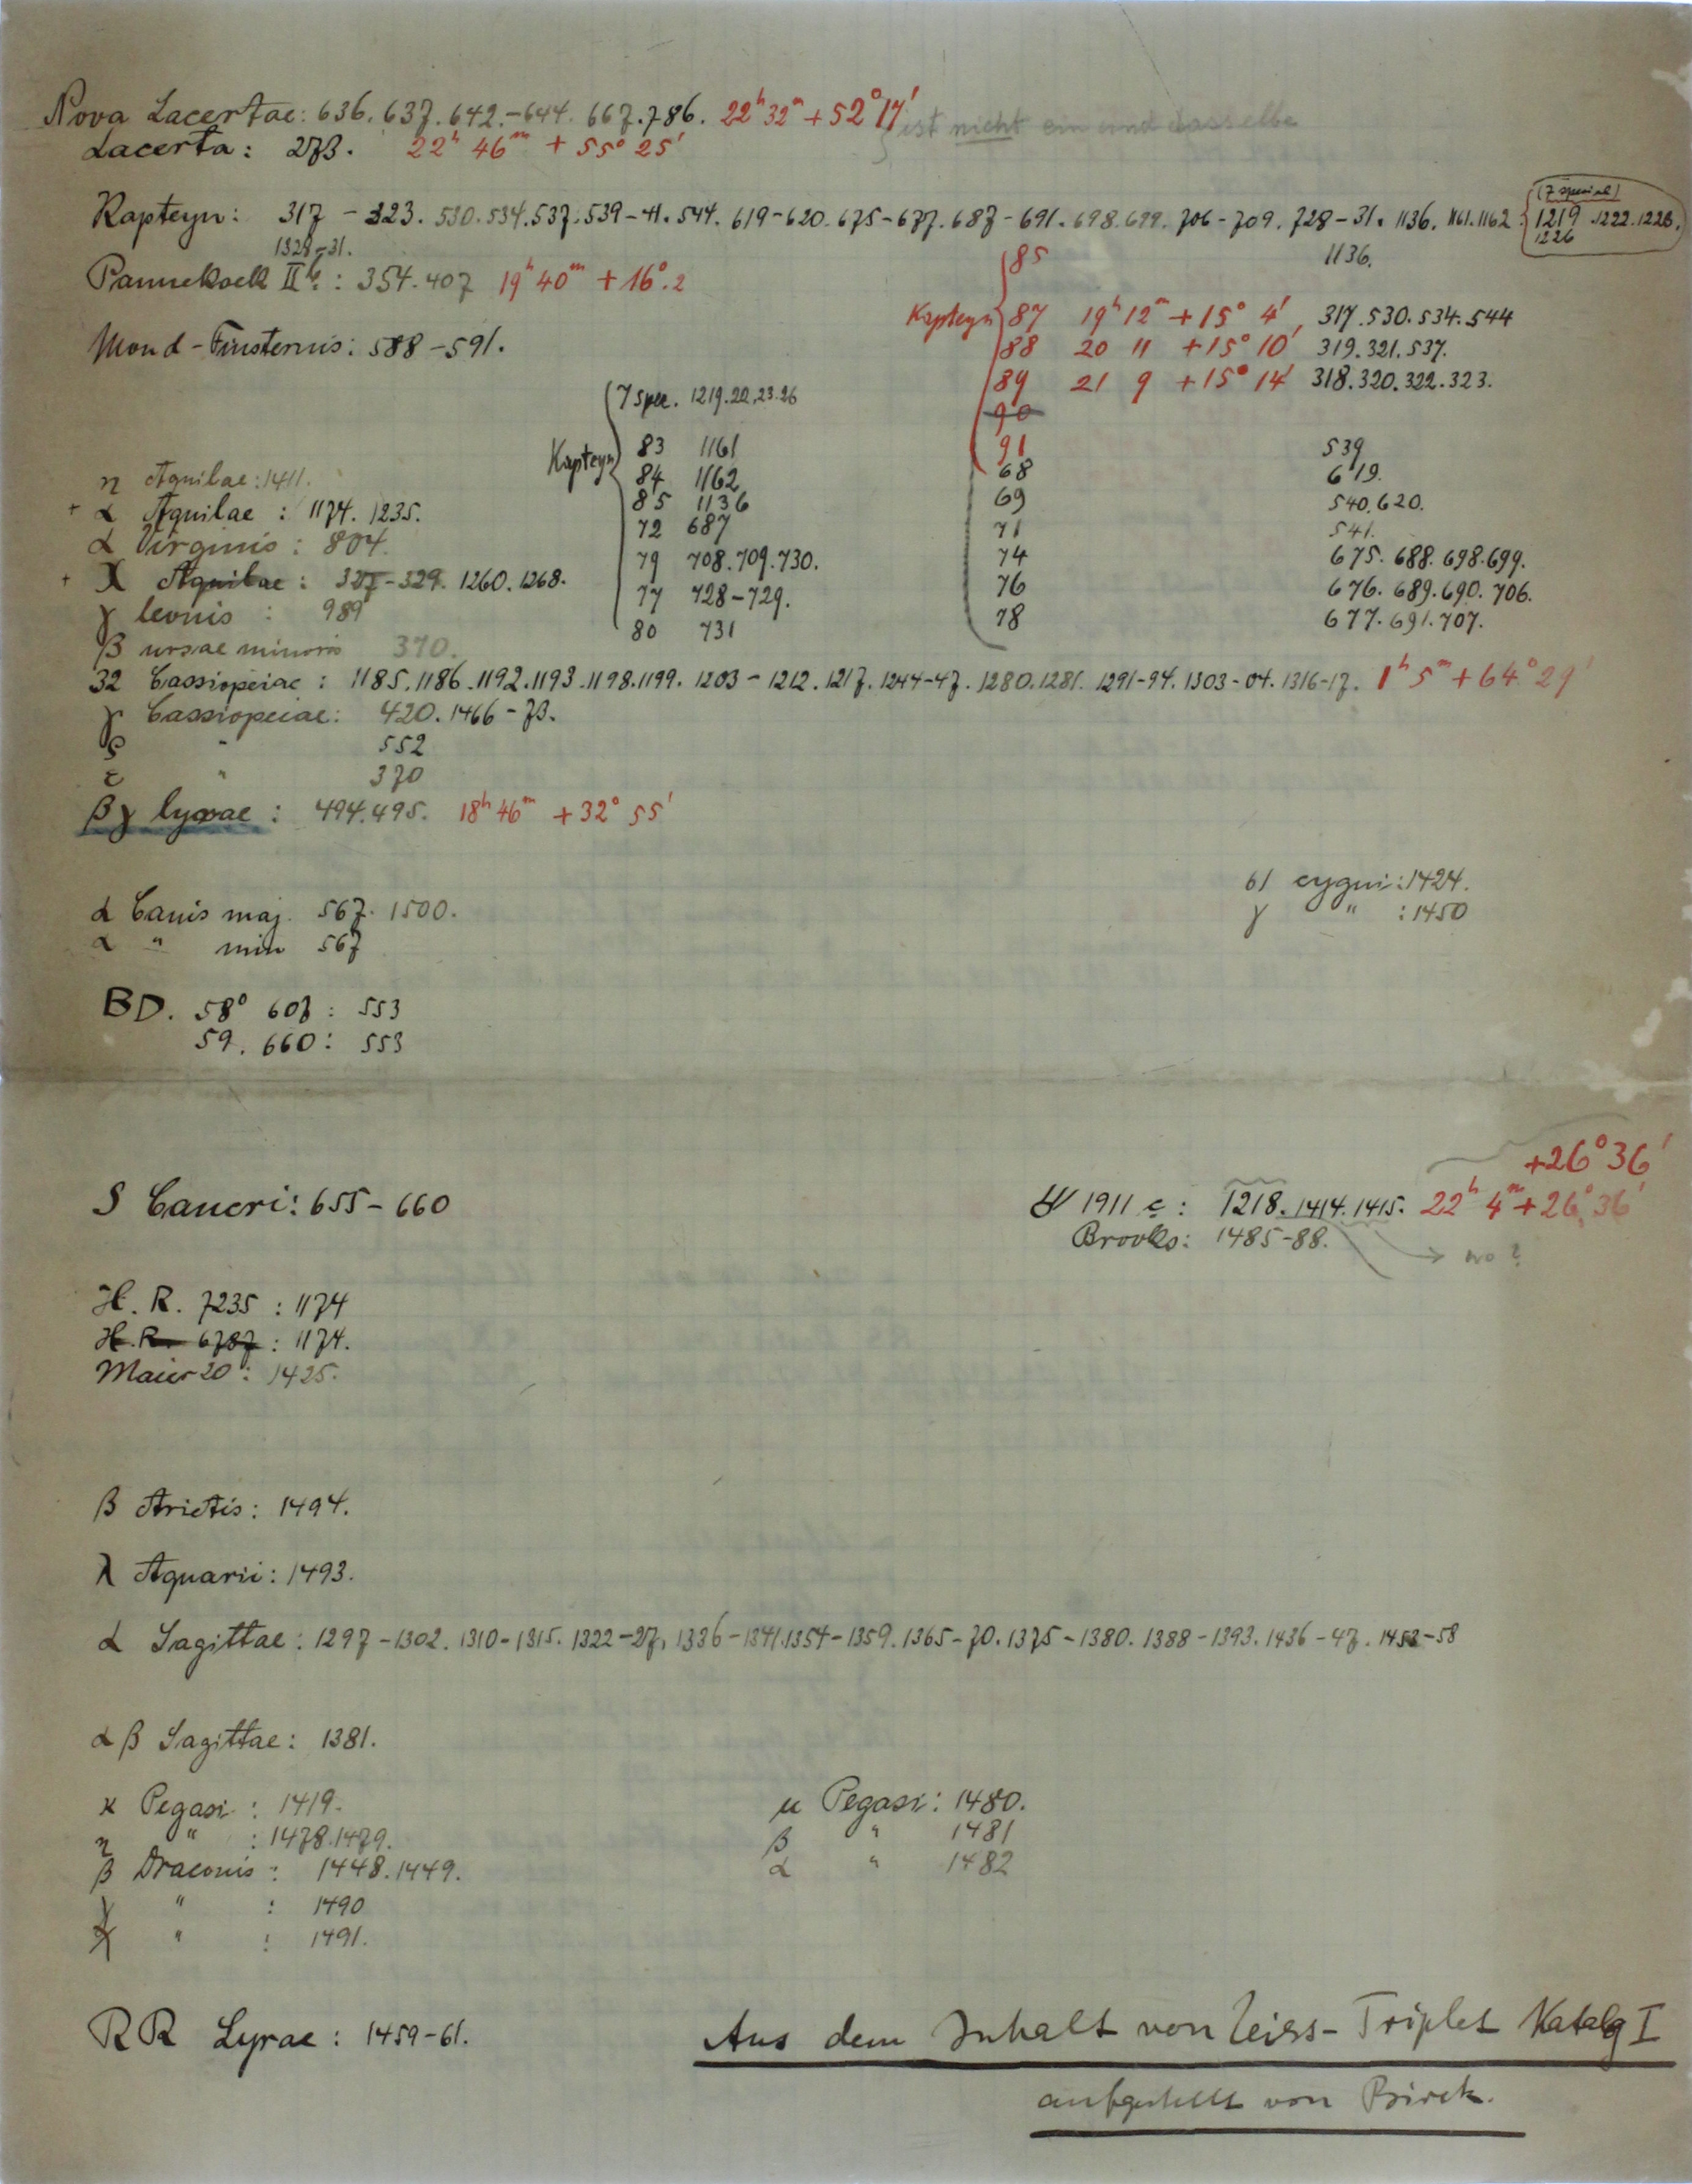 Nova Lacertae: 636. 637. 642.-644. 667. 786. 22ʰ 32ᵐ + 52° 17′ ist nicht ein und dasselbe
Lacerta: 273. 22ʰ 46ᵐ + 55° 25′
(7 special)
Kapteyn: 317 - 323. 530. 534. 537. 539-41. 544. 619-620. 675-677. 687-691. 698. 699. 706-709. 728-31. 1136. 1161. 1162. 1219. 1222. 1223.
1328-31. 1226
Pannekoek II: 354. 407 19ʰ 40ᵐ + 16°.2
Mond-Finsternis: 588-591.
85 1136.
Kapteyn 87 19ʰ 12ᵐ + 15° 4′ 317. 530. 534. 544
88 20 11 + 15° 10′ 319. 321. 537.
89 21 9 + 15° 14′ 318. 320. 322. 323.
90
91 539
68 619.
69 540. 620.
71 541.
74 675. 688. 698. 699.
76 676. 689. 690. 706.
78 677. 691. 707.
7 spec. 1219. 22. 23. 26
Kapteyn 83 1161
84 1162
85 1136
72 687
79 708. 709. 730.
77 728-729.
80 731
η Aquilae: 1411.
+ α Aquilae: 1174. 1235.
α Virginis: 804.
+ X Aquilae: 327-329. 1260. 1268.
γ leonis: 989
β ursae minoris 370.
32 Cassiopeiae: 1185. 1186. 1192. 1193. 1198. 1199. 1203 - 1212. 1217. 1244-47. 1280. 1281. 1291-94. 1303-04. 1316-17. 1ʰ 5ᵐ + 64° 29′
γ Cassiopeiae: 420. 1466-73.
" 552
ε " 370
β γ lyrae: 494. 495. 18ʰ 46ᵐ + 32° 55′
61 cygni: 1424.
γ " : 1450
α Canis maj. 567. 1500.
α " min 567
BD. 58° 607: 553
59. 660: 553
+26° 36′
S Cancri: 655-660
1911 c: 1218. 1414. 1415. 22ʰ 4ᵐ + 26° 36′
Brooks: 1485-88. → wo?
H. R. 7235: 1174
H. R. 6787: 1174.
Maier 20: 1425.
β Arietis: 1494.
λ Aquarii: 1493.
α Sagittae: 1297-1302. 1310-1315. 1322-27. 1336-1341. 1354-1359. 1365-70. 1375-1380. 1388-1393. 1436-47. 1453-58
α β Sagittae: 1381.
κ Pegasi: 1419.
η " : 1478. 1479.
β Draconis: 1448. 1449.
γ " : 1490
" : 1491.
μ Pegasi: 1480.
β " 1481
α " 1482
RR Lyrae: 1459-61.
Aus dem Inhalt von Zeiss-Triplet Katalg I
aufgestellt von Birck.